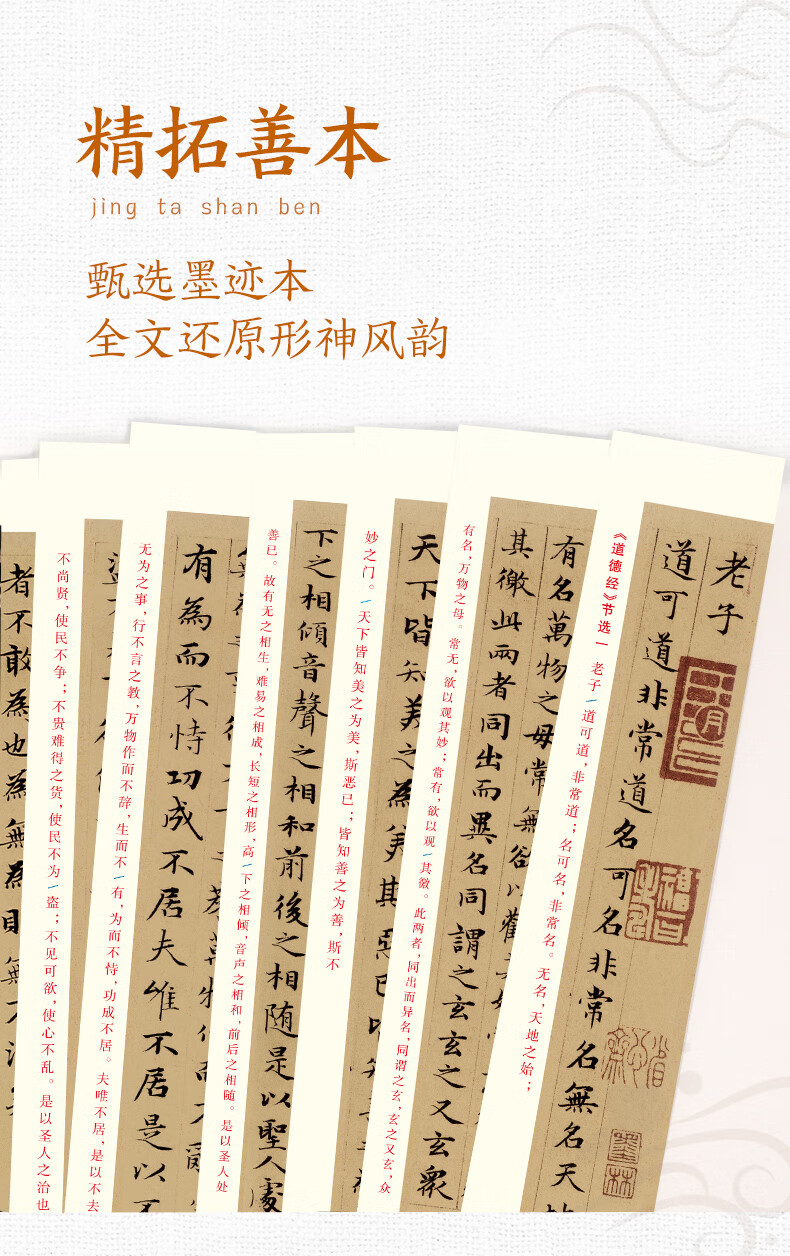 精拓善本
jing ta shan ben
甄选墨迹本
全文还原形神风韵
老子
道可道非常道名可名非常名無名天
《道德经》节选一 老子/道可道，非常道；名可名，非常名。无名，天地之始；
有名萬物之母常無欲以觀
其徼此兩者同出而異名同謂之玄玄之又玄衆
有名，万物之母。常无，欲以观其妙；常有，欲以观/其徼。此两者，同出而异名，同谓之玄，玄之又玄，众
天下皆知美之為美其惡已
妙之门。/天下皆知美之为美，斯恶已；皆知善之为善，斯不
下之相傾音聲之相和前後之相随是以聖人處
善已。故有无之相生，难易之相成，长短之相形，高/下之相倾，音声之相和，前后之相随。是以圣人处
有為而不恃功成不居夫唯不居是以不
无为之事，行不言之教，万物作而不辞，生而不/有，为而不恃，功成不居。夫唯不居，是以不去
不尚贤，使民不争；不贵难得之货，使民不为/盗；不见可欲，使心不乱。是以圣人之治也
者不敢為也為無為